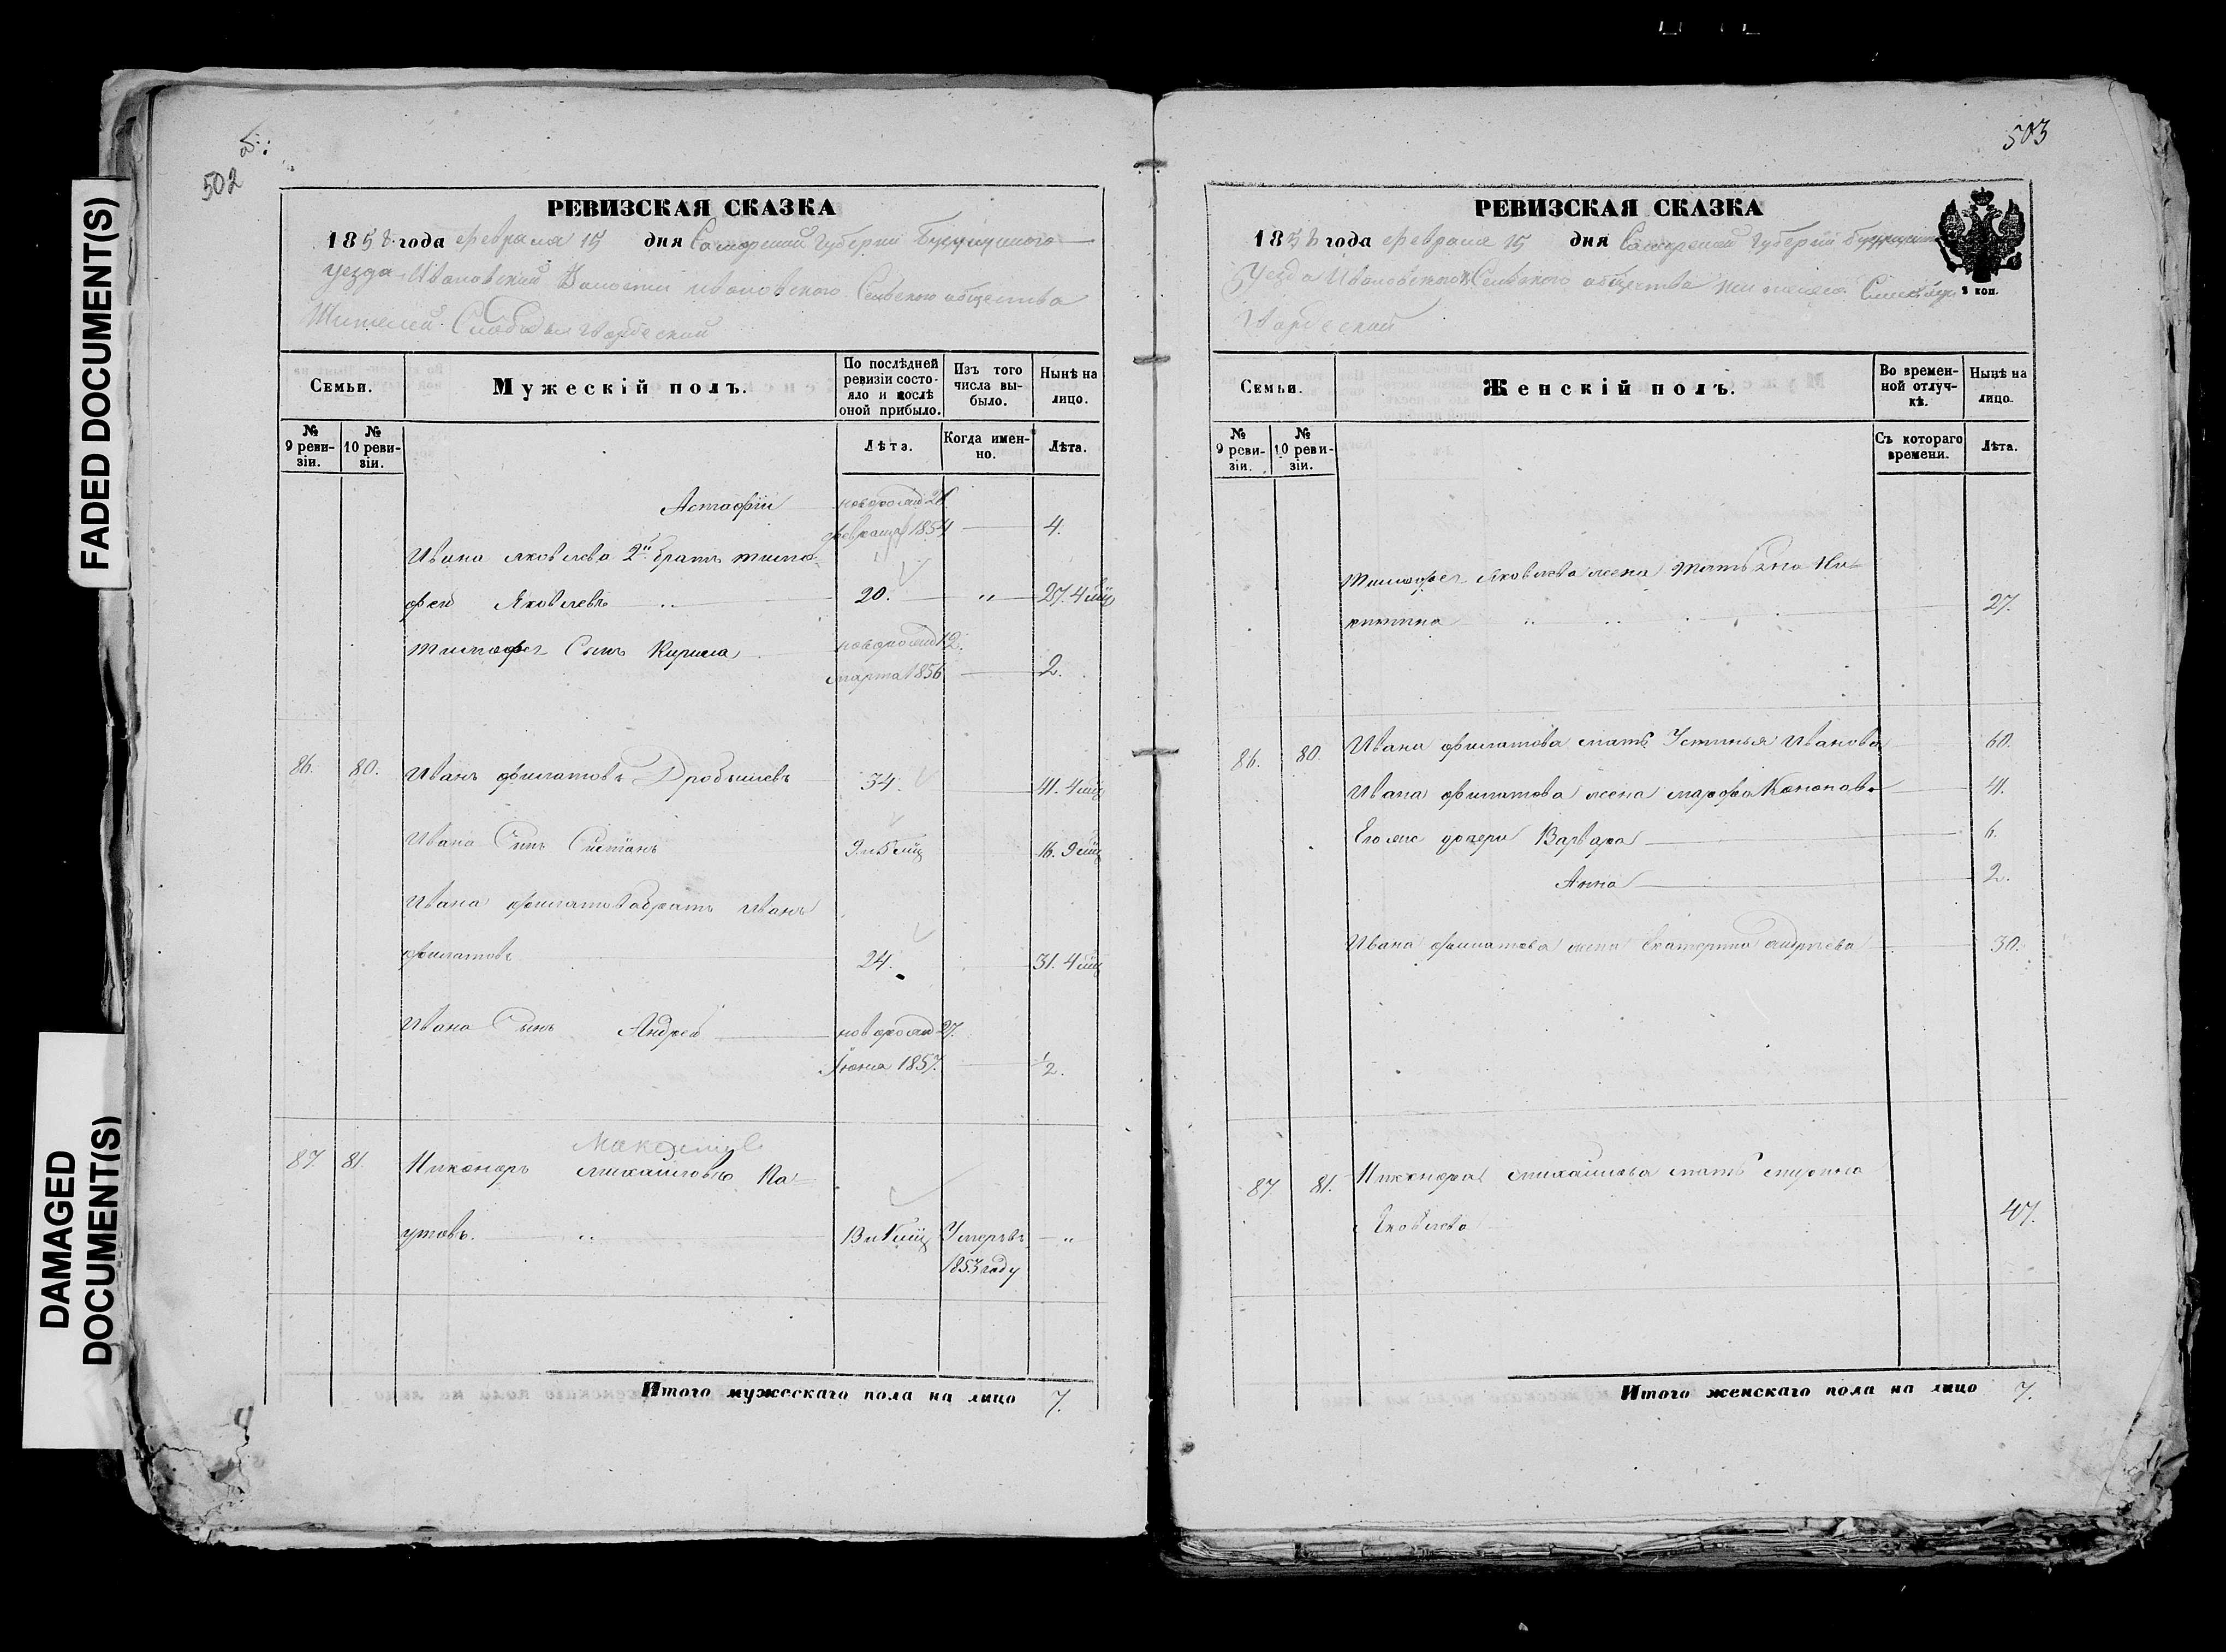 FADED DOCUMENT(S)
DAMAGED
DOCUMENT(S)
502
РЕВИЗСКАЯ СКАЗКА
1858 года февраля 15 дня Самарской губернии Бузулукского
уезда Ивановской Волости ивановского Сельского общества
Жителей Слободы
Семьи.
Мужескій полъ.
По послѣдней
ревизіи состо-
яло и послѣ
оной прибыло.
Изъ того
числа вы-
было.
Нынѣ на
лицо.
№
9 реви-
зіи.
№
10 реви-
зіи.
Лѣта.
Когда имен-
но.
Лѣта.
Астафiй новорожд 26
февраля 1854 4.
Ивана яковлева 2й братъ тимо-
фей Яковлевъ 20. „ 27. 4 мц
тимофея Сынъ Кирила новорожд 12
марта 1856 2.
86. 80. Иванъ филатовъ Дробышевъ 34. 41. 4 мц
Ивана Сынъ 9 и 5 мц 16. 9 мц
Ивана филатова братъ Иванъ
филатовъ 24. 31. 4 мц
Ивана Сынъ Андрей новорожд 27.
Iюня 1857. 1/2.
Максимув
87. 81. Никоноръ михайловъ Ка-
утовъ. 13 и 1 мц Умеръ въ „
1853 году
Итого мужескаго пола на лицо 7.
503
РЕВИЗСКАЯ СКАЗКА
1858 года февраля 15 дня Самарской губернии
Уезда Ивановского Сельского общества
3 коп.
Семьи.
Женскій полъ.
Во времен-
ной отлуч-
кѣ.
Нынѣ на
лицо.
№
9 реви-
зіи.
№
10 реви-
зіи.
Съ котораго
времени.
Лѣта.
Тимофея Яковлева жена Ни-
китина 27.
86. 80. Ивана филатова мать Устинья Иванова 60.
Ивана филатова жена марфа Кононова 41.
Его же дочери Варвара 6.
Анна 2.
Ивана филатова жена Екатерина андреева 30.
87 81. Никонора михайлова мать
Яковлева 47.
Итого женскаго пола на лицо 7.